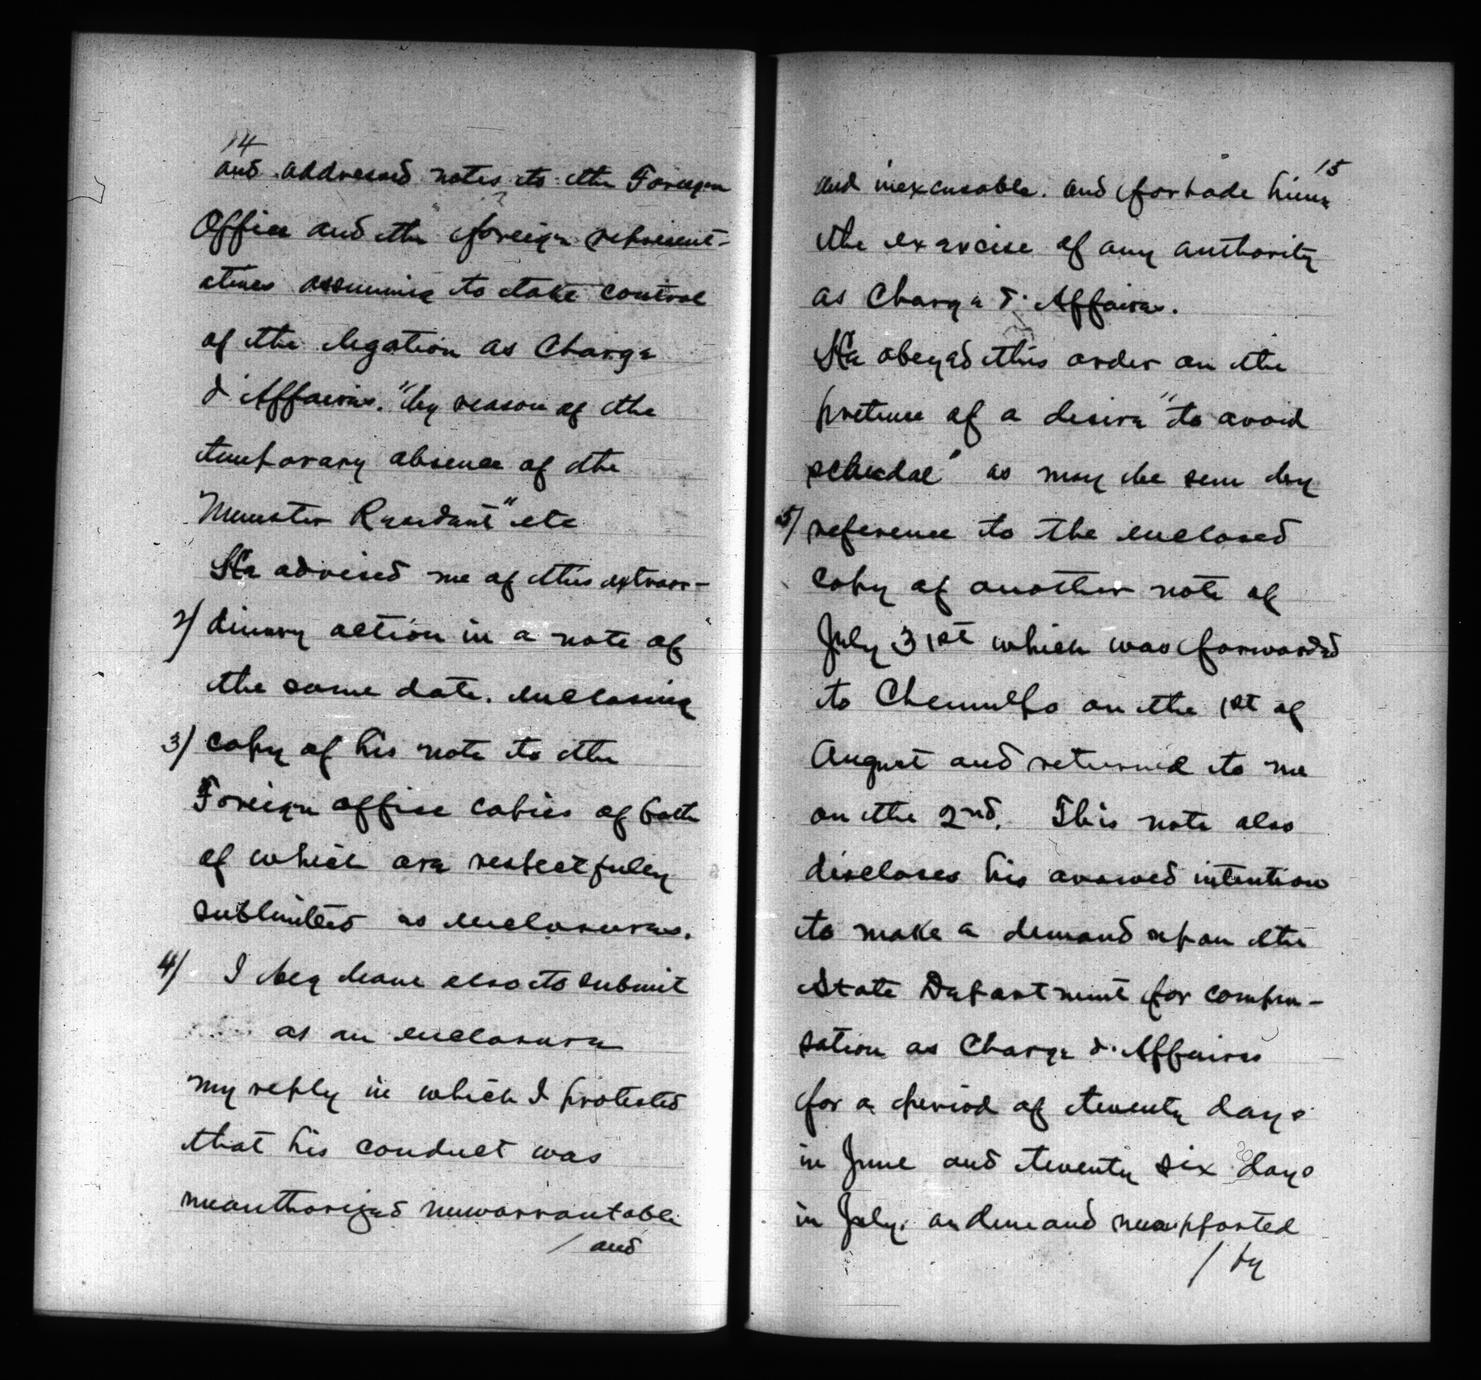 14
and addressed notes to the Foreign
Office and the foreign represent-
atives assuming to take control
of the legation as Charge
d'Affaires. "by reason of the
temporary absence of the
Minister Resident" etc
He advised me of this extraor-
2/ dinary action in a note of
the same date. enclosing
3/ copy of his note to the
Foreign office copies of both
of which are respectfuley
submitted as enclosures.
4/ I beg leave also to submit
as an enclosure
my reply in which I protested
that his conduct was
unauthorized unwarrantable
/ and
15
and inexcusable. and forbade him
the exercise of any authority
as Charge d'Affaires.
He obeyed this order on the
pretense of a desire "to avoid
schedal" as may be seen by
5/ reference to the enclosed
copy of another note of
July 31st which was forwarded
to Chemulpo on the 1st of
August and returned to me
on the 2nd. This note also
discloses his avowed intention
to make a demand upon the
State Department for compen-
sation as Charge d'Affaires
for a period of twenty days
in June and twenty six days
in July. a demand unsupported
/ by